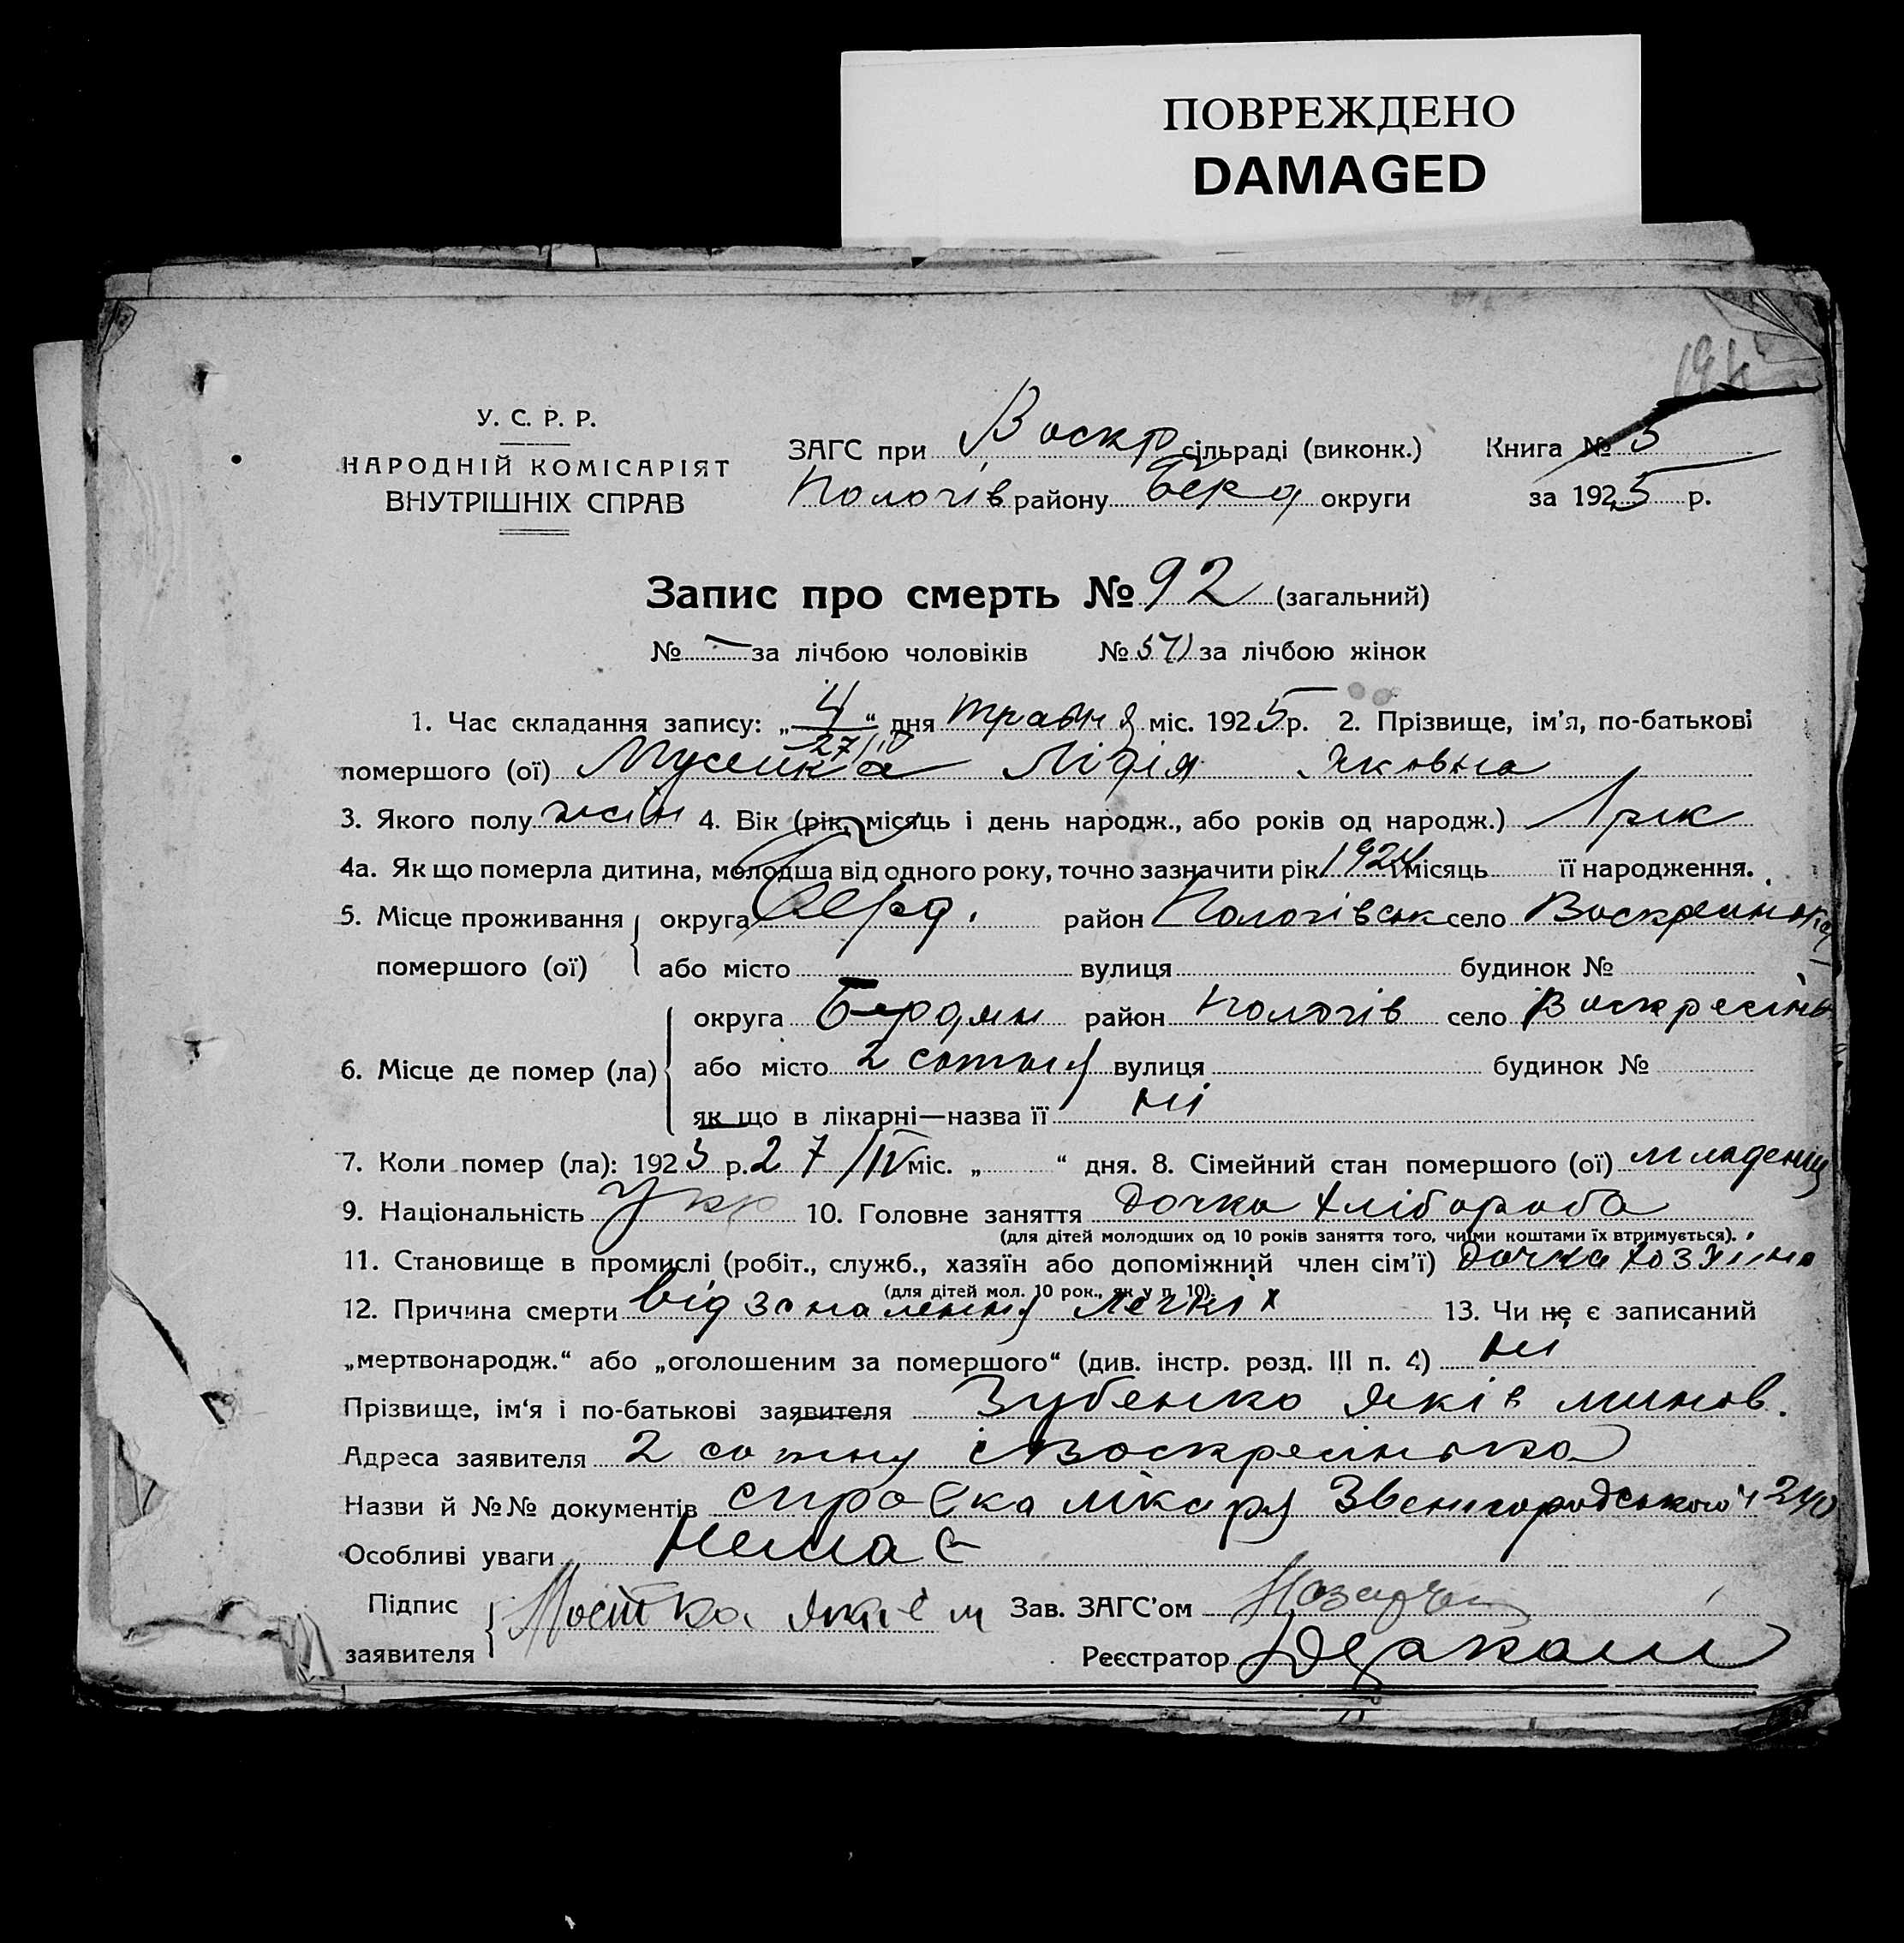 ПОВРЕЖДЕНО
DAMAGED
У. С. Р. Р.
НАРОДНІЙ КОМІСАРІЯТ
ВНУТРІШНІХ СПРАВ
ЗАГС при Воскр сільраді (виконк.) Книга № 5
Пологів району Берд округи за 1925 р.
Запис про смерть № 92 (загальний)
№ - за лічбою чоловіків № за лічбою жінок
1. Час складання запису: „4“ дня травня міс. 1925 р. 2. Прізвище, ім’я, по-батькові
27/IV
помершого (ої) Лідія Яковна
3. Якого полу жін 4. Вік (рік, місяць і день народж., або років од народж.) 1 рік
4а. Як що померла дитина, молодша від одного року, точно зазначити рік 1924 місяць її народження.
5. Місце проживання округа Берд. район Пологівськ село Воскресінька
помершого (ої) або місто вулиця будинок №
округа Бердян район Пологів село Воскресінь
6. Місце де помер (ла) або місто 2 сотня вулиця будинок №
як що в лікарні—назва її ні
7. Коли помер (ла): 1925 р. 27/IV міс. „ “ дня. 8. Сімейний стан помершого (ої) младенец
9. Національність Укр 10. Головне заняття дочка хлібороба
(для дітей молодших од 10 років заняття того, чиїми коштами їх втримується).
11. Становище в промислі (робіт., служб., хазяїн або допоміжний член сім’ї) дочка хозяїна
(для дітей мол. 10 рок., як у п. 10).
12. Причина смерти від запалення легких 13. Чи не є записаний
„мертвонародж.“ або „оголошеним за помершого“ (див. інстр. розд. III п. 4) ні
Прізвище, ім‘я і по-батькові заявителя Зубенко Яків минов.
Адреса заявителя 2 сотну Воскресінька
Назви й №№ документів справка лікаря Звенигородського ч 240
Особливі уваги немає
Підпис заявителя Зав. ЗАГС’ом
Реєстратор